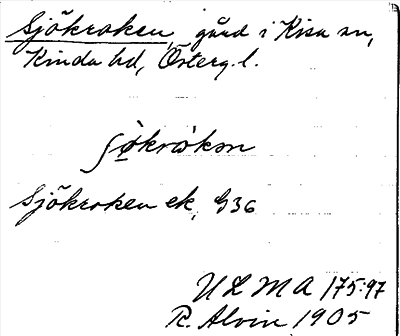 Sjökroken, gård i Kisa sn,
Kinda hd, Österg. l.
ʃø̀kròkən
Sjökroken ek, G36
ULMA 175:97
R. Alvin 1905